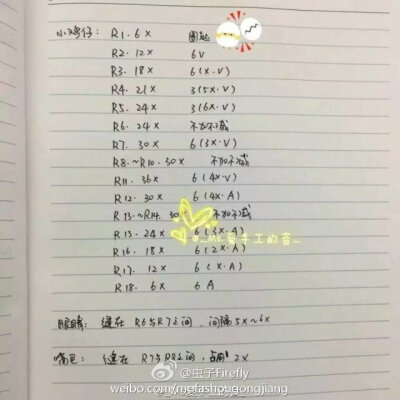 小鸡仔: R1. 6x 圈起
R2. 12x 6V
R3. 18x 6(x.V)
R4. 21x 3(5x.V)
R5. 24x 3(6x.V)
R6. 24x 不加不减
R7. 30x 6(3x.V)
R8.~R10. 30x 不加不减
R11. 36x 6(4x.V)
R12. 30x 6(4x.A)
R13.~R14. 30x 不加不减
R15. 24x 6(3x.A)
@_Ms.蛋手工的喜_
R16. 18x 6(2x.A)
R17. 12x 6(x.A)
R18. 6x 6A
眼睛: 缝在 R6与R7之间, 间隔5x~6x
嘴巴: 缝在 R7与R8之间, 占用2x
@虫子Firefly
weibo.com/mofashougongjiang